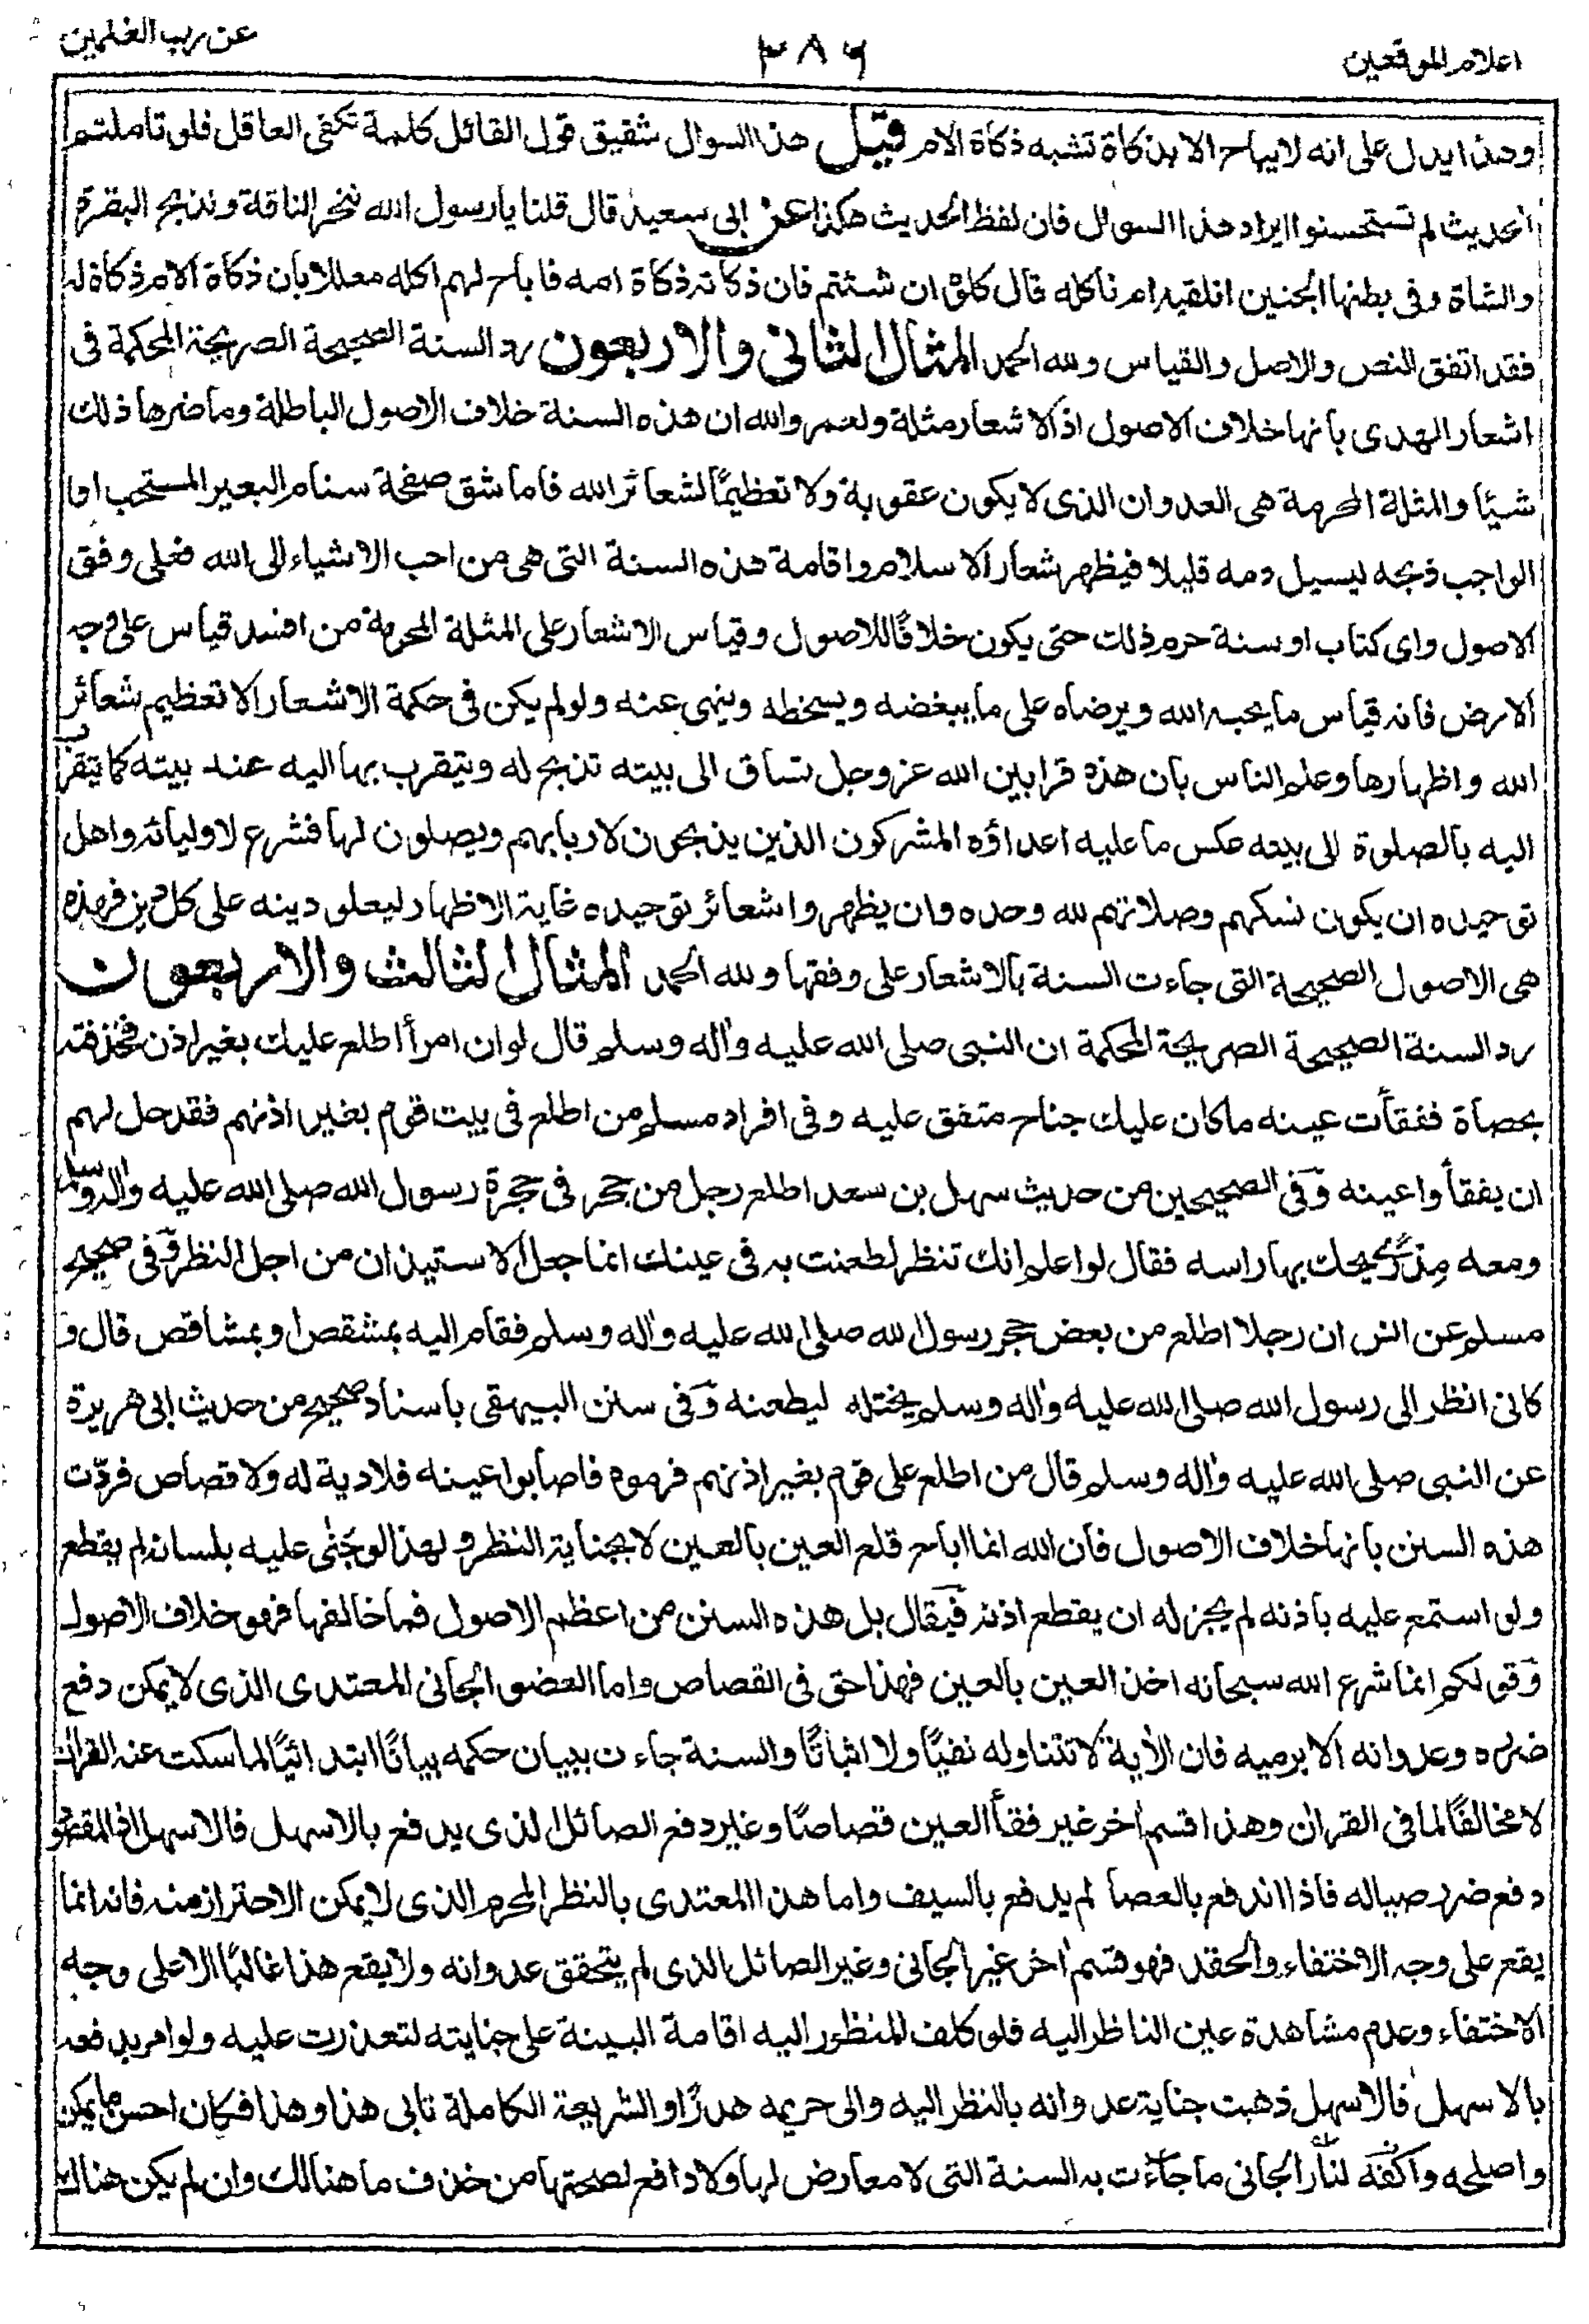 اعلام الموقعين
٣٨٦
عن رب العلمين
وهذا يدل على انه لا يباح الا بذكاة تشبه ذكاة الام قيل هذا السوال شقيق قول القائل كلمة تكفى العاقل فلو تاملتم
الحديث لم تستحسنوا ايراد هذا السوال فان لفظ الحديث هكذا عن ابى سعيد قال قلنا يا رسول الله ننحر الناقة ونذبح البقرة
والشاة وفى بطنها الجنين انلقيه ام ناكله قال كلوه ان شئتم فان ذكاته ذكاة امه فاباح لهم اكله معللا بان ذكاة الام ذكاة له
فقد اتفق النص والاصل والقياس ولله الحمد المثال الثانى والاربعون رد السنة الصحيحة الصريحة المحكمة فى
اشعار الهدى بانها خلاف الاصول اذ الاشعار مثلة ولعمر والله ان هذه السنة خلاف الاصول الباطلة وما ضرها ذلك
شيئا والمثلة المحرمة هى العدوان الذى لا يكون عقوبة ولا تعظيمًا لشعائر الله فاما شق صفحة سنام البعير المستحب او
الواجب ذبحه ليسيل دمه قليلا فيظهر شعار الاسلام واقامة هذه السنة التى هى من احب الاشياء الى الله فعلى وفق
الاصول واى كتاب او سنة حرم ذلك حتى يكون خلافًا للاصول وقياس الاشعار على المثلة المحرمة من افسد قياس على وجه
الارض فانه قياس ما يحبه الله ويرضاه على ما يبغضه ويسخطه وينهى عنه ولو لم يكن فى حكمة الاشعار الا تعظيم شعائر
الله واظهارها وعلم الناس بان هذه قرابين الله عز وجل تساق الى بيته تذبح له ويتقرب بها اليه عند بيته كما يتقرب
اليه بالصلوة الى بيته عكس ما عليه اعداؤه المشركون الذين يذبحون لاربابهم ويصلون لها فشرع لاوليائه واهل
توحيده ان يكون نسكهم وصلاتهم لله وحده وان يظهروا شعائر توحيده غاية الاظهار ليعلو دينه على كل دين فهذه
هى الاصول الصحيحة التى جاءت السنة بالاشعار على وفقها ولله الحمد المثال الثالث والاربعون
رد السنة الصحيحة الصريحة المحكمة ان النبى صلى الله عليه واٰله وسلم قال لو ان امرأ اطلع عليك بغير اذن فخذفته
بحصاة ففقأت عينه ما كان عليك جناح متفق عليه وفى افراد مسلم من اطلع فى بيت قوم بغير اذنهم فقد حل لهم
ان يفقأوا عينه وفى الصحيحين من حديث سهل بن سعد اطلع رجل من حجر فى حجرة رسول الله صلى الله عليه واٰله وسلم
ومعه مدرى يحك بها راسه فقال لو اعلم انك تنظر لطعنت به فى عينك انما جعل الاستيذان من اجل النظر وفى صحيح
مسلم عن انس ان رجلا اطلع من بعض حجر رسول الله صلى الله عليه واٰله وسلم فقام اليه بمشقص او بمشاقص قال و
كانى انظر الى رسول الله صلى الله عليه واٰله وسلم يختله ليطعنه وفى سنن البيهقى باسناد صحيح من حديث ابى هريرة
عن النبى صلى الله عليه واٰله وسلم قال من اطلع على قوم بغير اذنهم فرموه فاصابوا عينه فلا دية له ولا قصاص فردّت
هذه السنن بانها خلاف الاصول فان الله انما اباح قلع العين بالعين لا بجناية النظر ولهذا لو جنٰى عليه بلسانه لم يقطع
ولو استمع عليه باذنه لم يجز له ان يقطع اذنه فيقال بل هذه السنن من اعظم الاصول فما خالفها فهو خلاف الاصول
وقولكم انما شرع الله سبحانه اخذ العين بالعين فهذا حق فى القصاص واما العضو الجانى المعتدى الذى لا يمكن دفع
ضرره وعدوانه الا برميه فان الاٰية لا تتناوله نفيًا ولا اثباتًا والسنة جاءت ببيان حكمه بيانًا ابتدائيًا لما سكت عنه القراٰن
لا مخالفًا لما فى القراٰن وهذا قسم اٰخر غير فقأ العين قصاصًا وغير دفع الصائل الذى يدفع بالاسهل فالاسهل اذ المقصود
دفع ضرر صياله فاذا اندفع بالعصا لم يدفع بالسيف واما هذا المعتدى بالنظر المحرم الذى لا يمكن الاحتراز منه فانه انما
يقع على وجه الاختفاء والحقد فهو قسم اٰخر غير الجانى وغير الصائل الذى لم يتحقق عدوانه ولا يقع هذا غالبًا الا على وجه
الاختفاء وعدم مشاهدة عين الناظر اليه فلو كلف المنظور اليه اقامة البينة على جنايته لتعذرت عليه ولو امر بدفعه
بالاسهل فالاسهل ذهبت جناية عدوانه بالنظر اليه والى حريمه هدرًا والشريعة الكاملة تابى هذا وهذا فكان احسن ما يمكن
واصلحه واكفه لنا الجانى ما جاءت به السنة التى لا معارض لها ولا دافع لصحتها من خذف ما هنالك وان لم يكن هناك